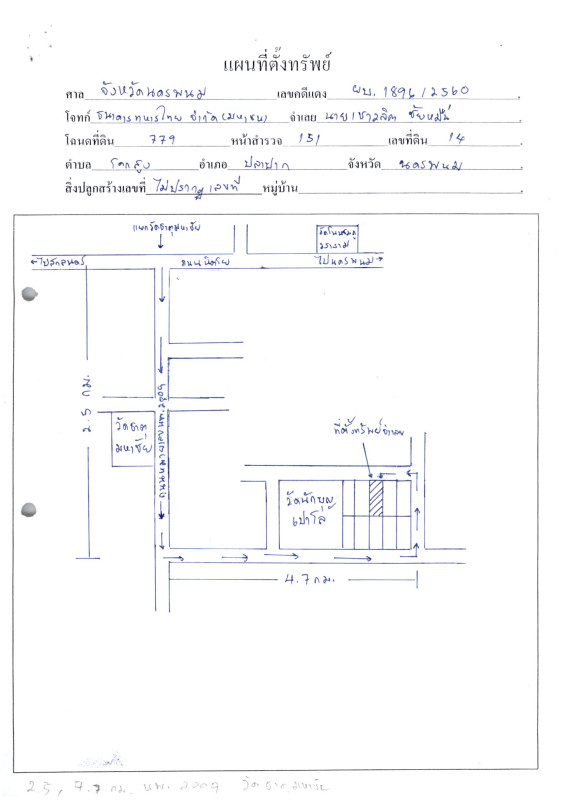 แผนที่ตั้งทรัพย์
ศาล จังหวัดนครพนม เลขคดีแดง ผบ. 1896 / 2560
โจทก์ ธนาคารทหารไทย จำกัด (มหาชน) จำเลย นายเชาวลิต
โฉนดที่ดิน 779 หน้าสำรวจ 151 เลขที่ดิน 14
ตำบล โคกสูง อำเภอ ปลาปาก จังหวัด นครพนม
สิ่งปลูกสร้างเลขที่ ไม่ปรากฏเลขที่ หมู่บ้าน
แยกวัดธาตุมหาชัย
ไปสกลนคร
ถนนนิตโย
ไปนครพนม
2.5 กม.
วัดธาตุ
มหาชัย
ถนนหมายเลข นพ. 2009
ที่ตั้งทรัพย์จำเลย
วัดนักบุญ
เปาโล
4.7 กม.
2.5, 4.7 กม. นพ. 2009 วัดธาตุมหาชัย